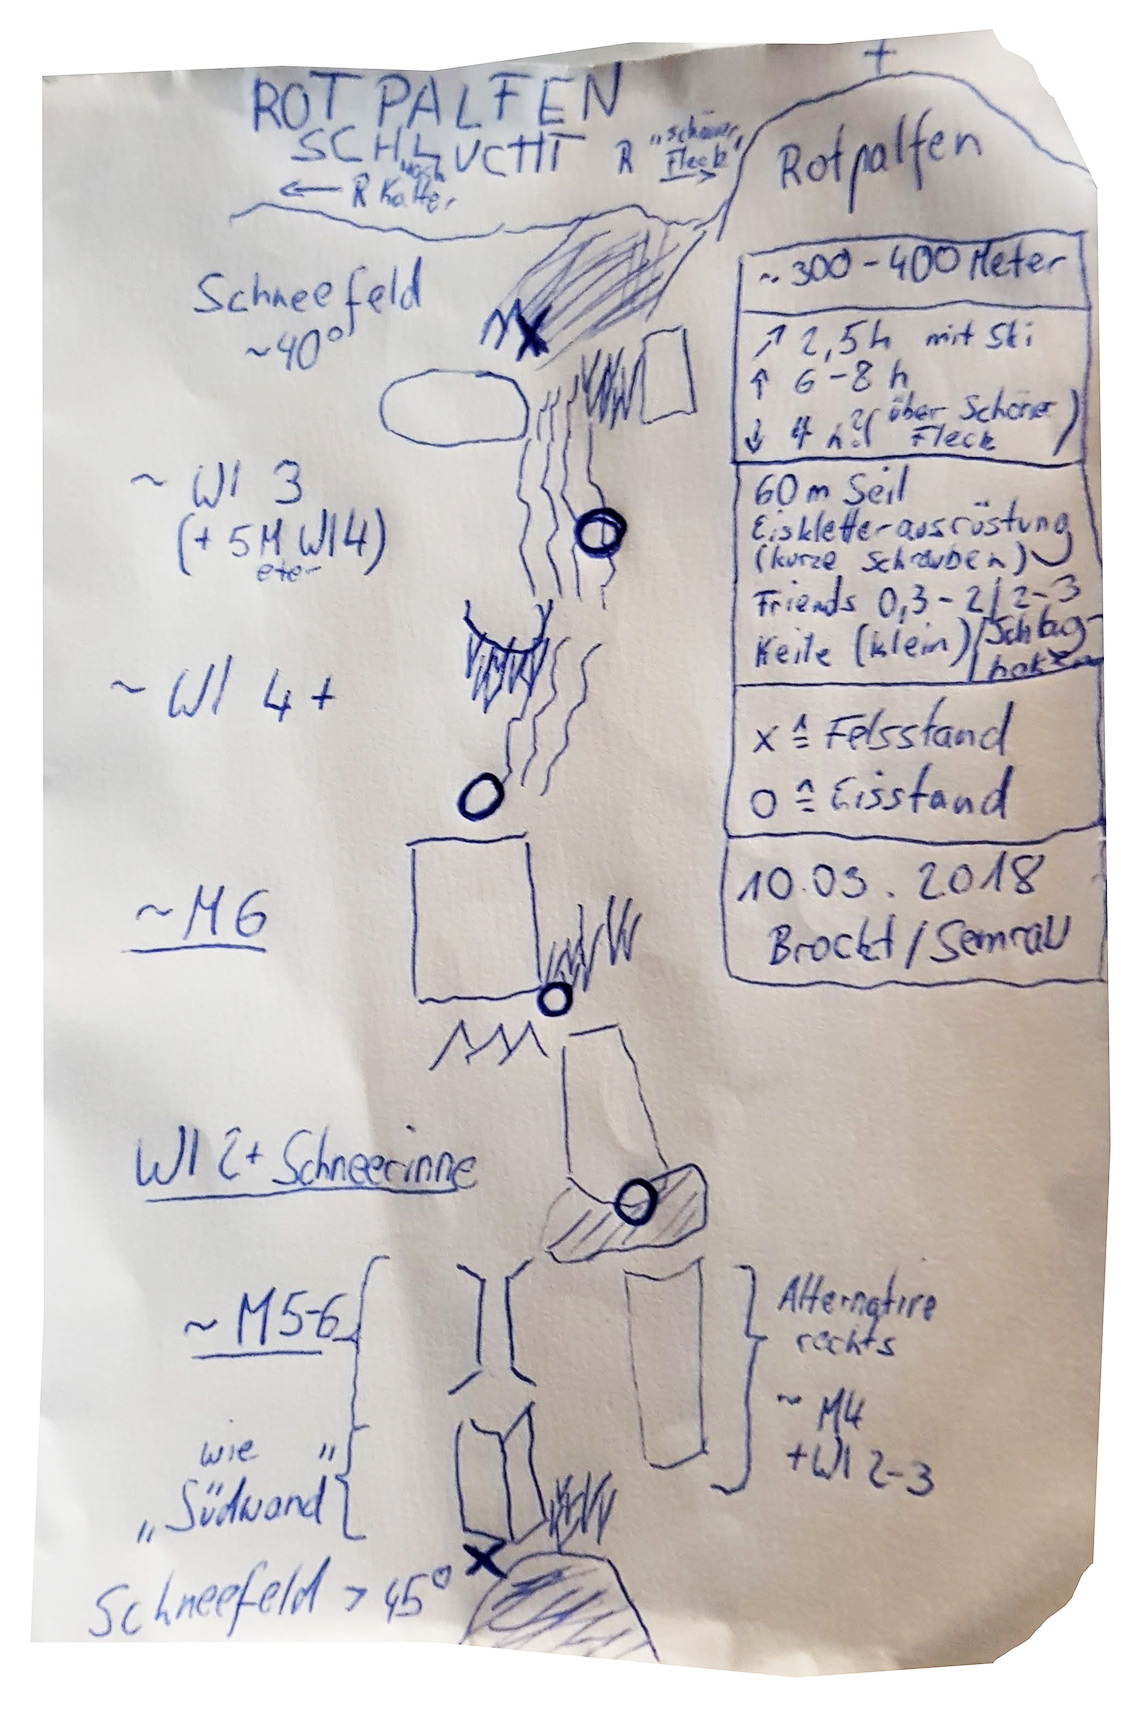 ROTPALFEN
SCHLUCHT
← R nach Kalter
R "schöner
Fleck"
→
Rotpalfen
Schneefeld
~40°
~ WI 3
(+ 5Meter WI4)
~ WI 4+
~M6
WI 2+ Schneerinne
~M5-6
wie
„Südwand"
Schneefeld > 45°
Alternative
rechts
~ M4
+WI 2-3
~300-400 Meter
↗ 2,5h mit Ski
↑ 6-8 h
↓ 4 h?(über Schöner
Fleck)
60m Seil
Eiskletterausrüstung
(kurze Schrauben)
Friends 0,3-2/2-3
Keile (klein)/Schlag-
haken
x ≙ Felsstand
O ≙ Eisstand
10.03.2018
Brockt/Semrau